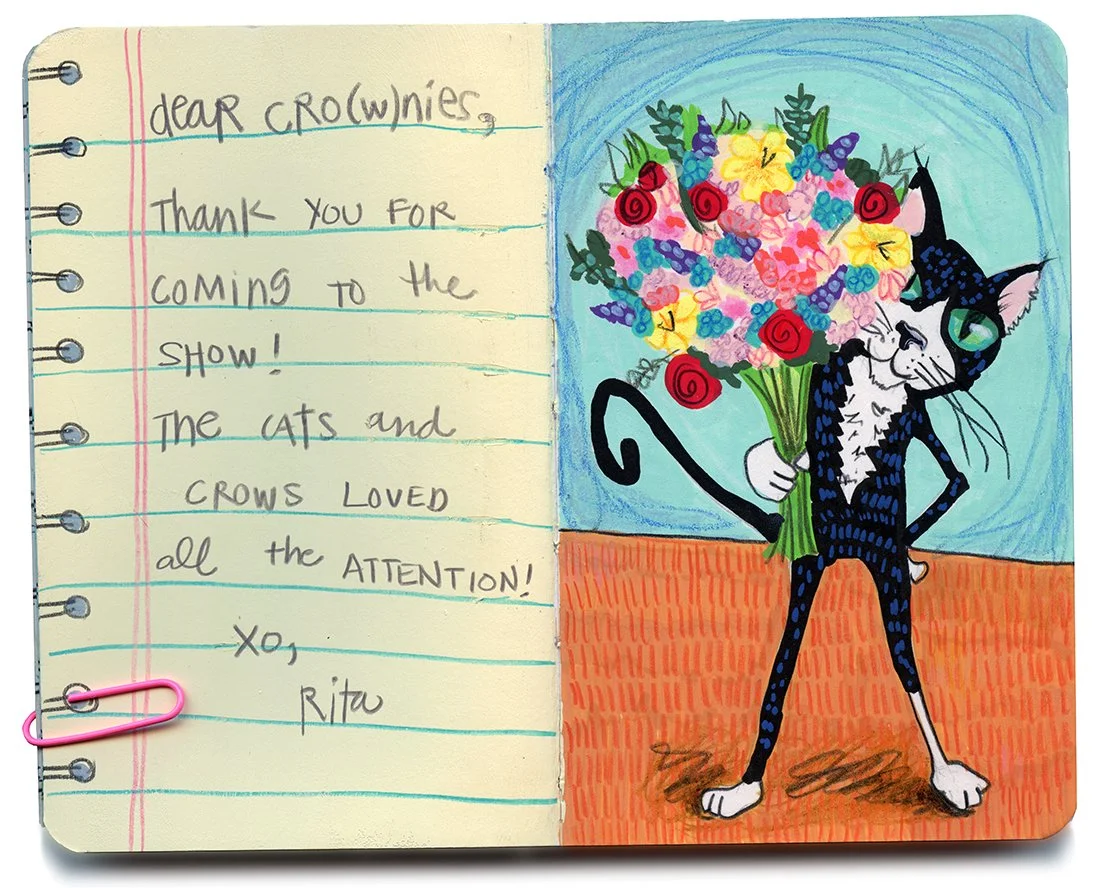 dear CRO(w)nies,
Thank YOU FOR
COMING TO the
SHOW!
The CATS and
CROWS LOVED
all the ATTENTION!
XO,
Rita